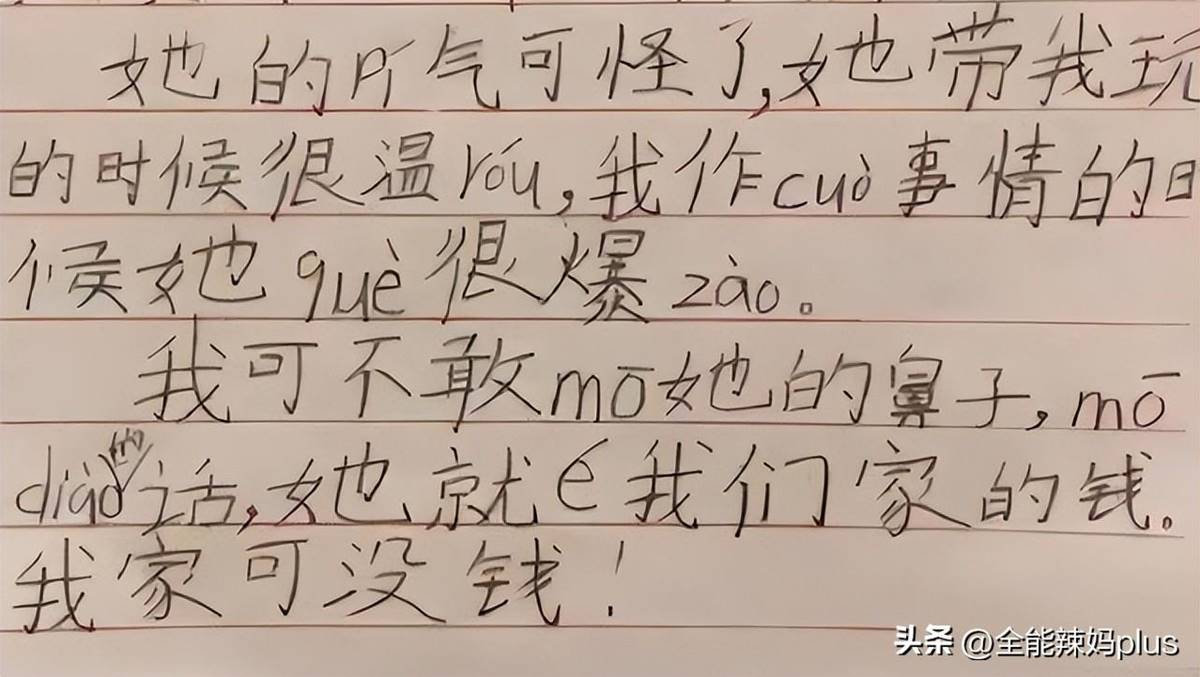 她的pí气可怪了,她带我玩
的时候很温róu,我作cuò事情的日
候她què很爆zào。
我可不敢mō她的鼻子,mō
diào的话,她就é我们家的钱。
我家可没钱!
头条 @全能辣妈plus